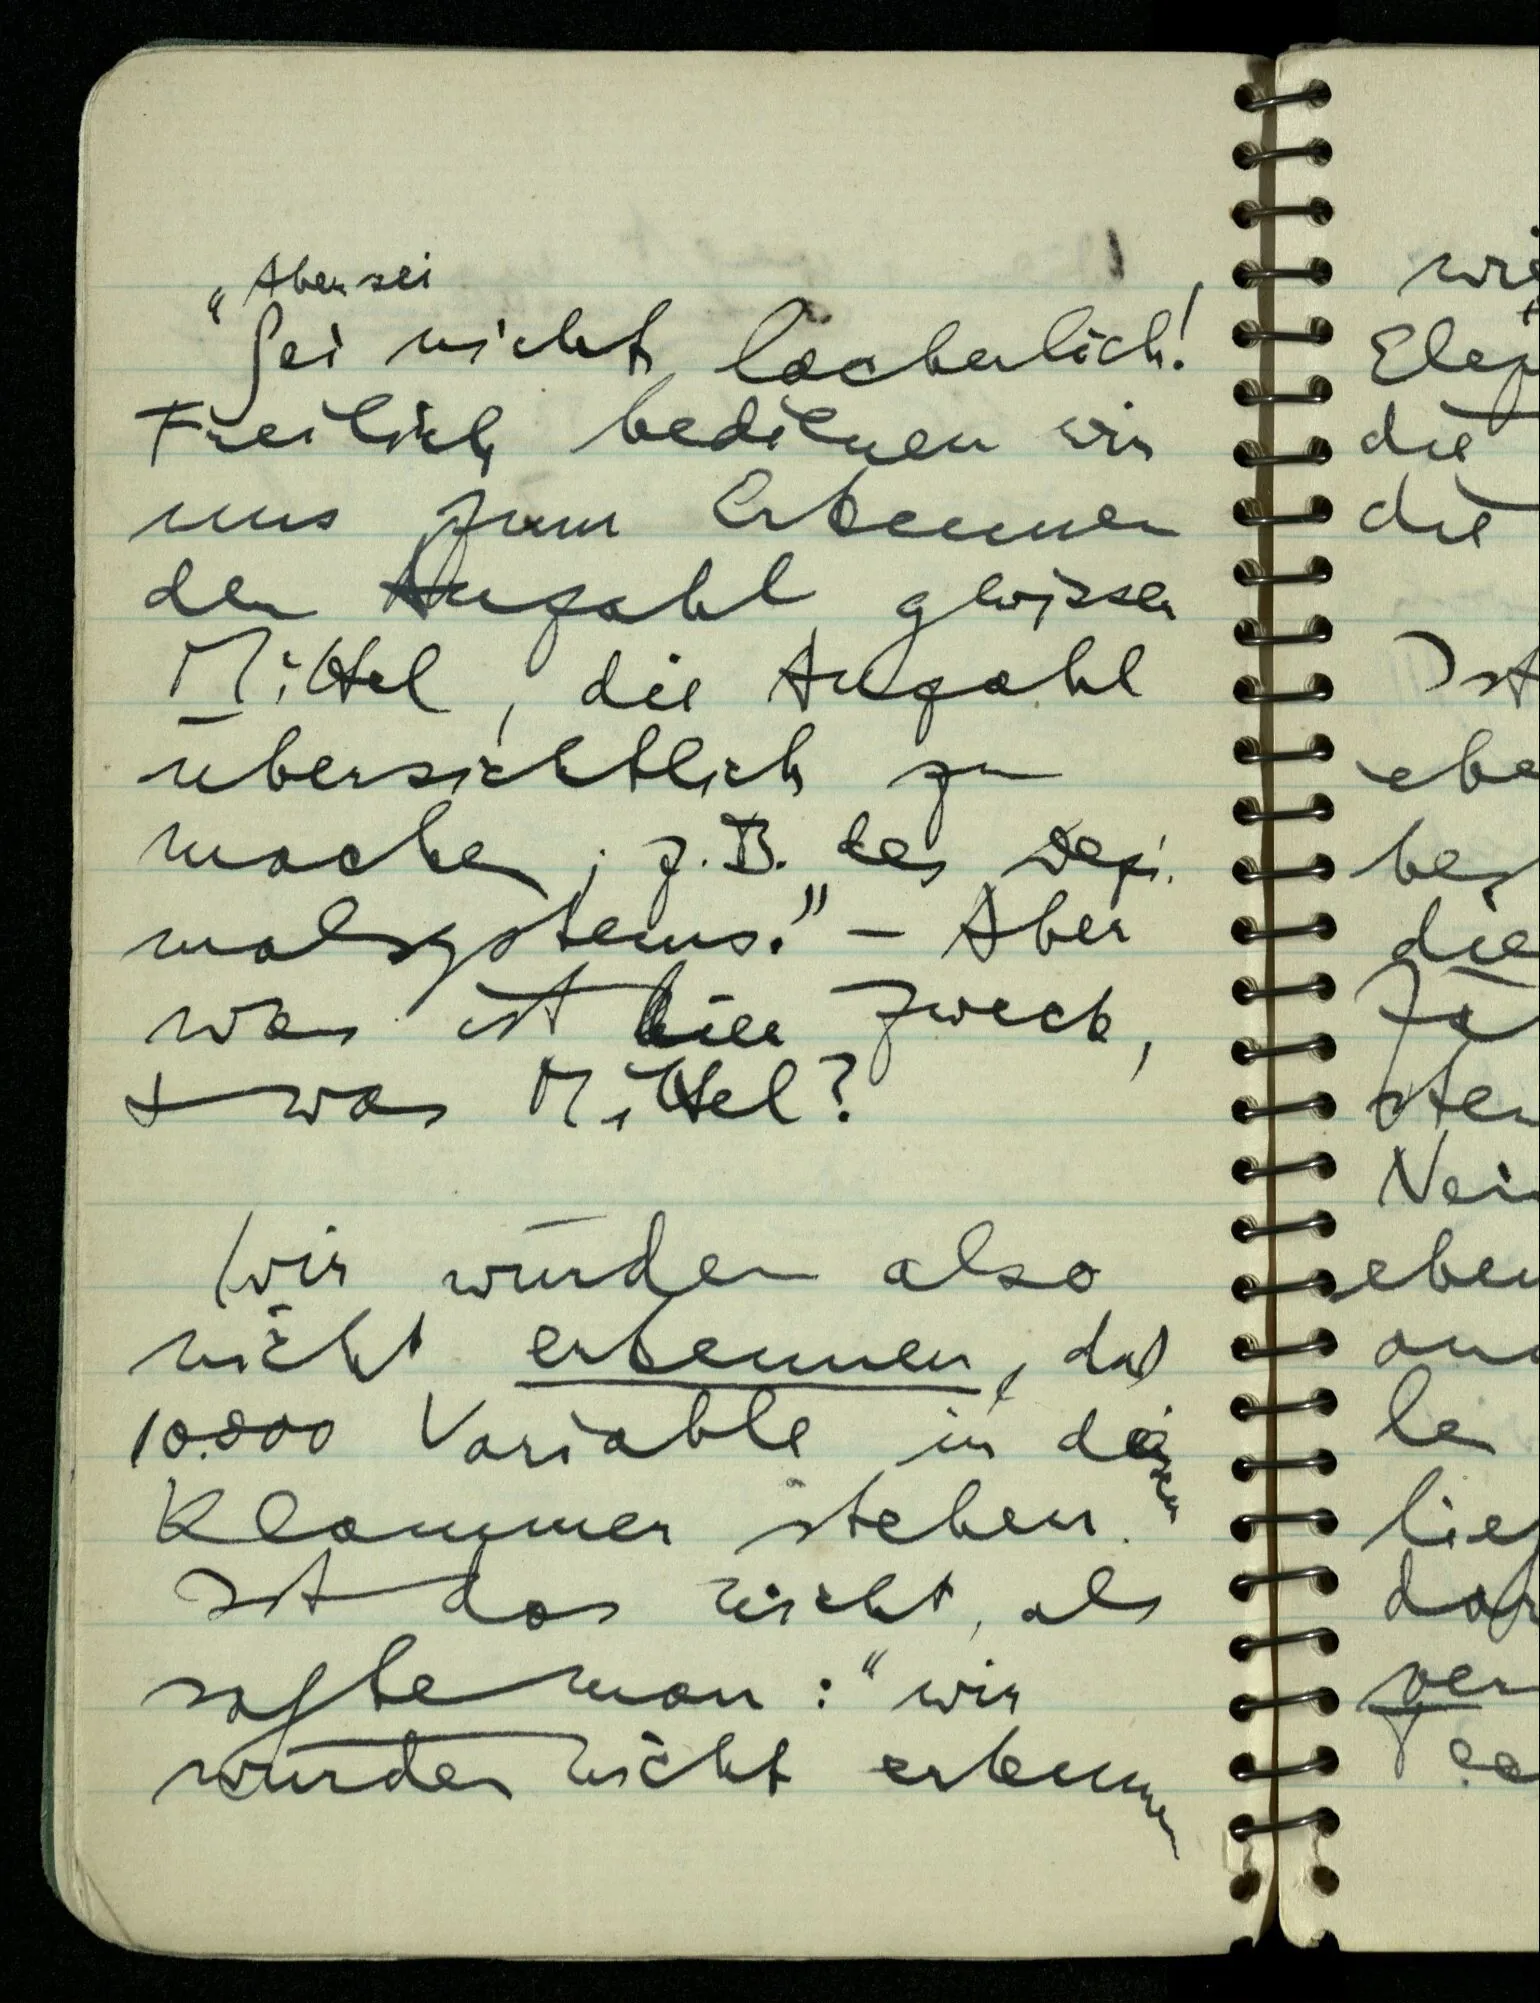 "Aber sei
Sei nicht lächerlich!
Freilich bedienen wir
uns zum Erkennen
der Anzahl gewisser
Mittel, die Anzahl
übersichtlich zu
machen; z.B. des Dezi-
malsystems." – Aber
was ist hier Zweck,
+ was Mittel?
Wir würden also
nicht erkennen, daß
10.000 Variable in dieser
Klammer stehen.
Ist das nicht, als
sagte man: "wir
würden nicht erkennen
wie
die
die
Ist
die